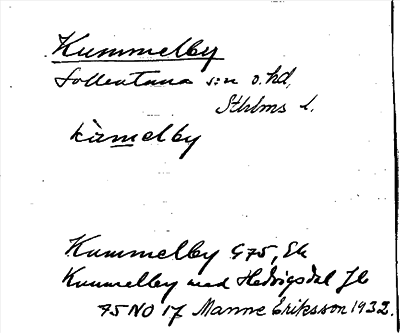 Kummelby
Sollentuna s:n o. hd,
Sthlms l.
kùmelby
Kummelby G75, Ek
Kummelby med Hedvigsdal Jb
75 NO 17 Manne Eriksson 1932.